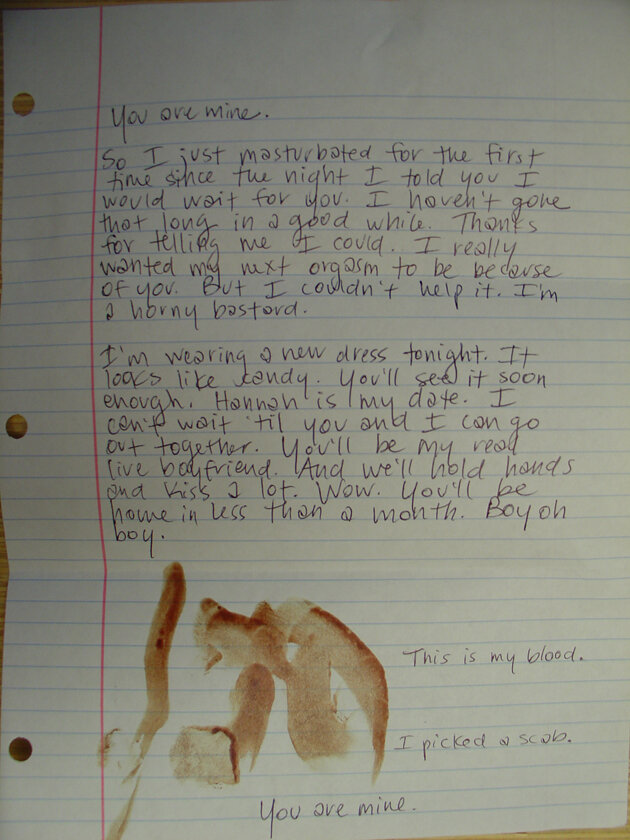 You are mine.
So I just masturbated for the first
time since the night I told you I
would wait for you. I haven't gone
that long in a good while. Thanks
for telling me I could. I really
wanted my next orgasm to be because
of you. But I couldn't help it. I'm
a horny bastard.
I'm wearing a new dress tonight. It
looks like candy. You'll see it soon
enough. Hannah is my date. I
can't wait 'til you and I can go
out together. You'll be my real
live boyfriend. And we'll hold hands
and kiss a lot. Wow. You'll be
home in less than a month. Boy oh
boy.
This is my blood.
I picked a scab.
You are mine.